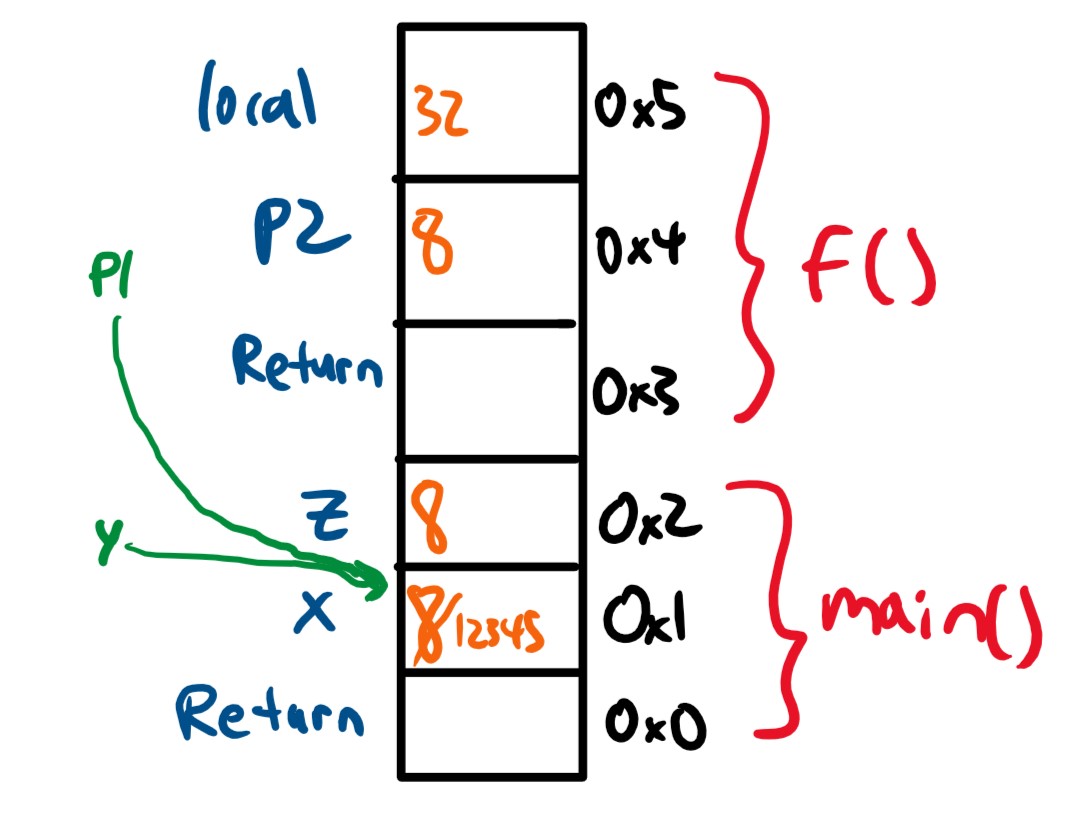 local 32 0x5
P2 8 0x4
f()
P1
Return 0x3
Z 8 0x2
Y
X 8/12345 0x1
main()
Return 0x0